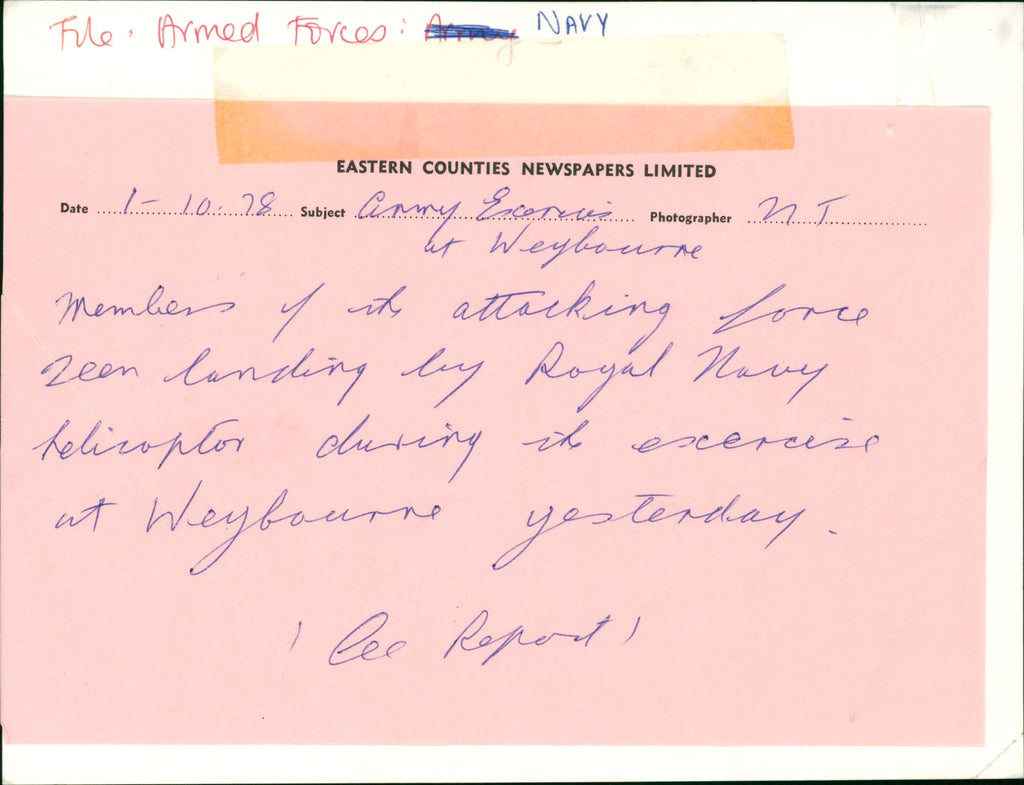 File. Armed Forces: Army NAVY
EASTERN COUNTIES NEWSPAPERS LIMITED
Date 1-10.78 Subject Army Exercise Photographer N T
at Weybourne
Members of the attacking force
seen landing by Royal Navy
helicoptor during the exercise
at Weybourne yesterday.
(See Report)